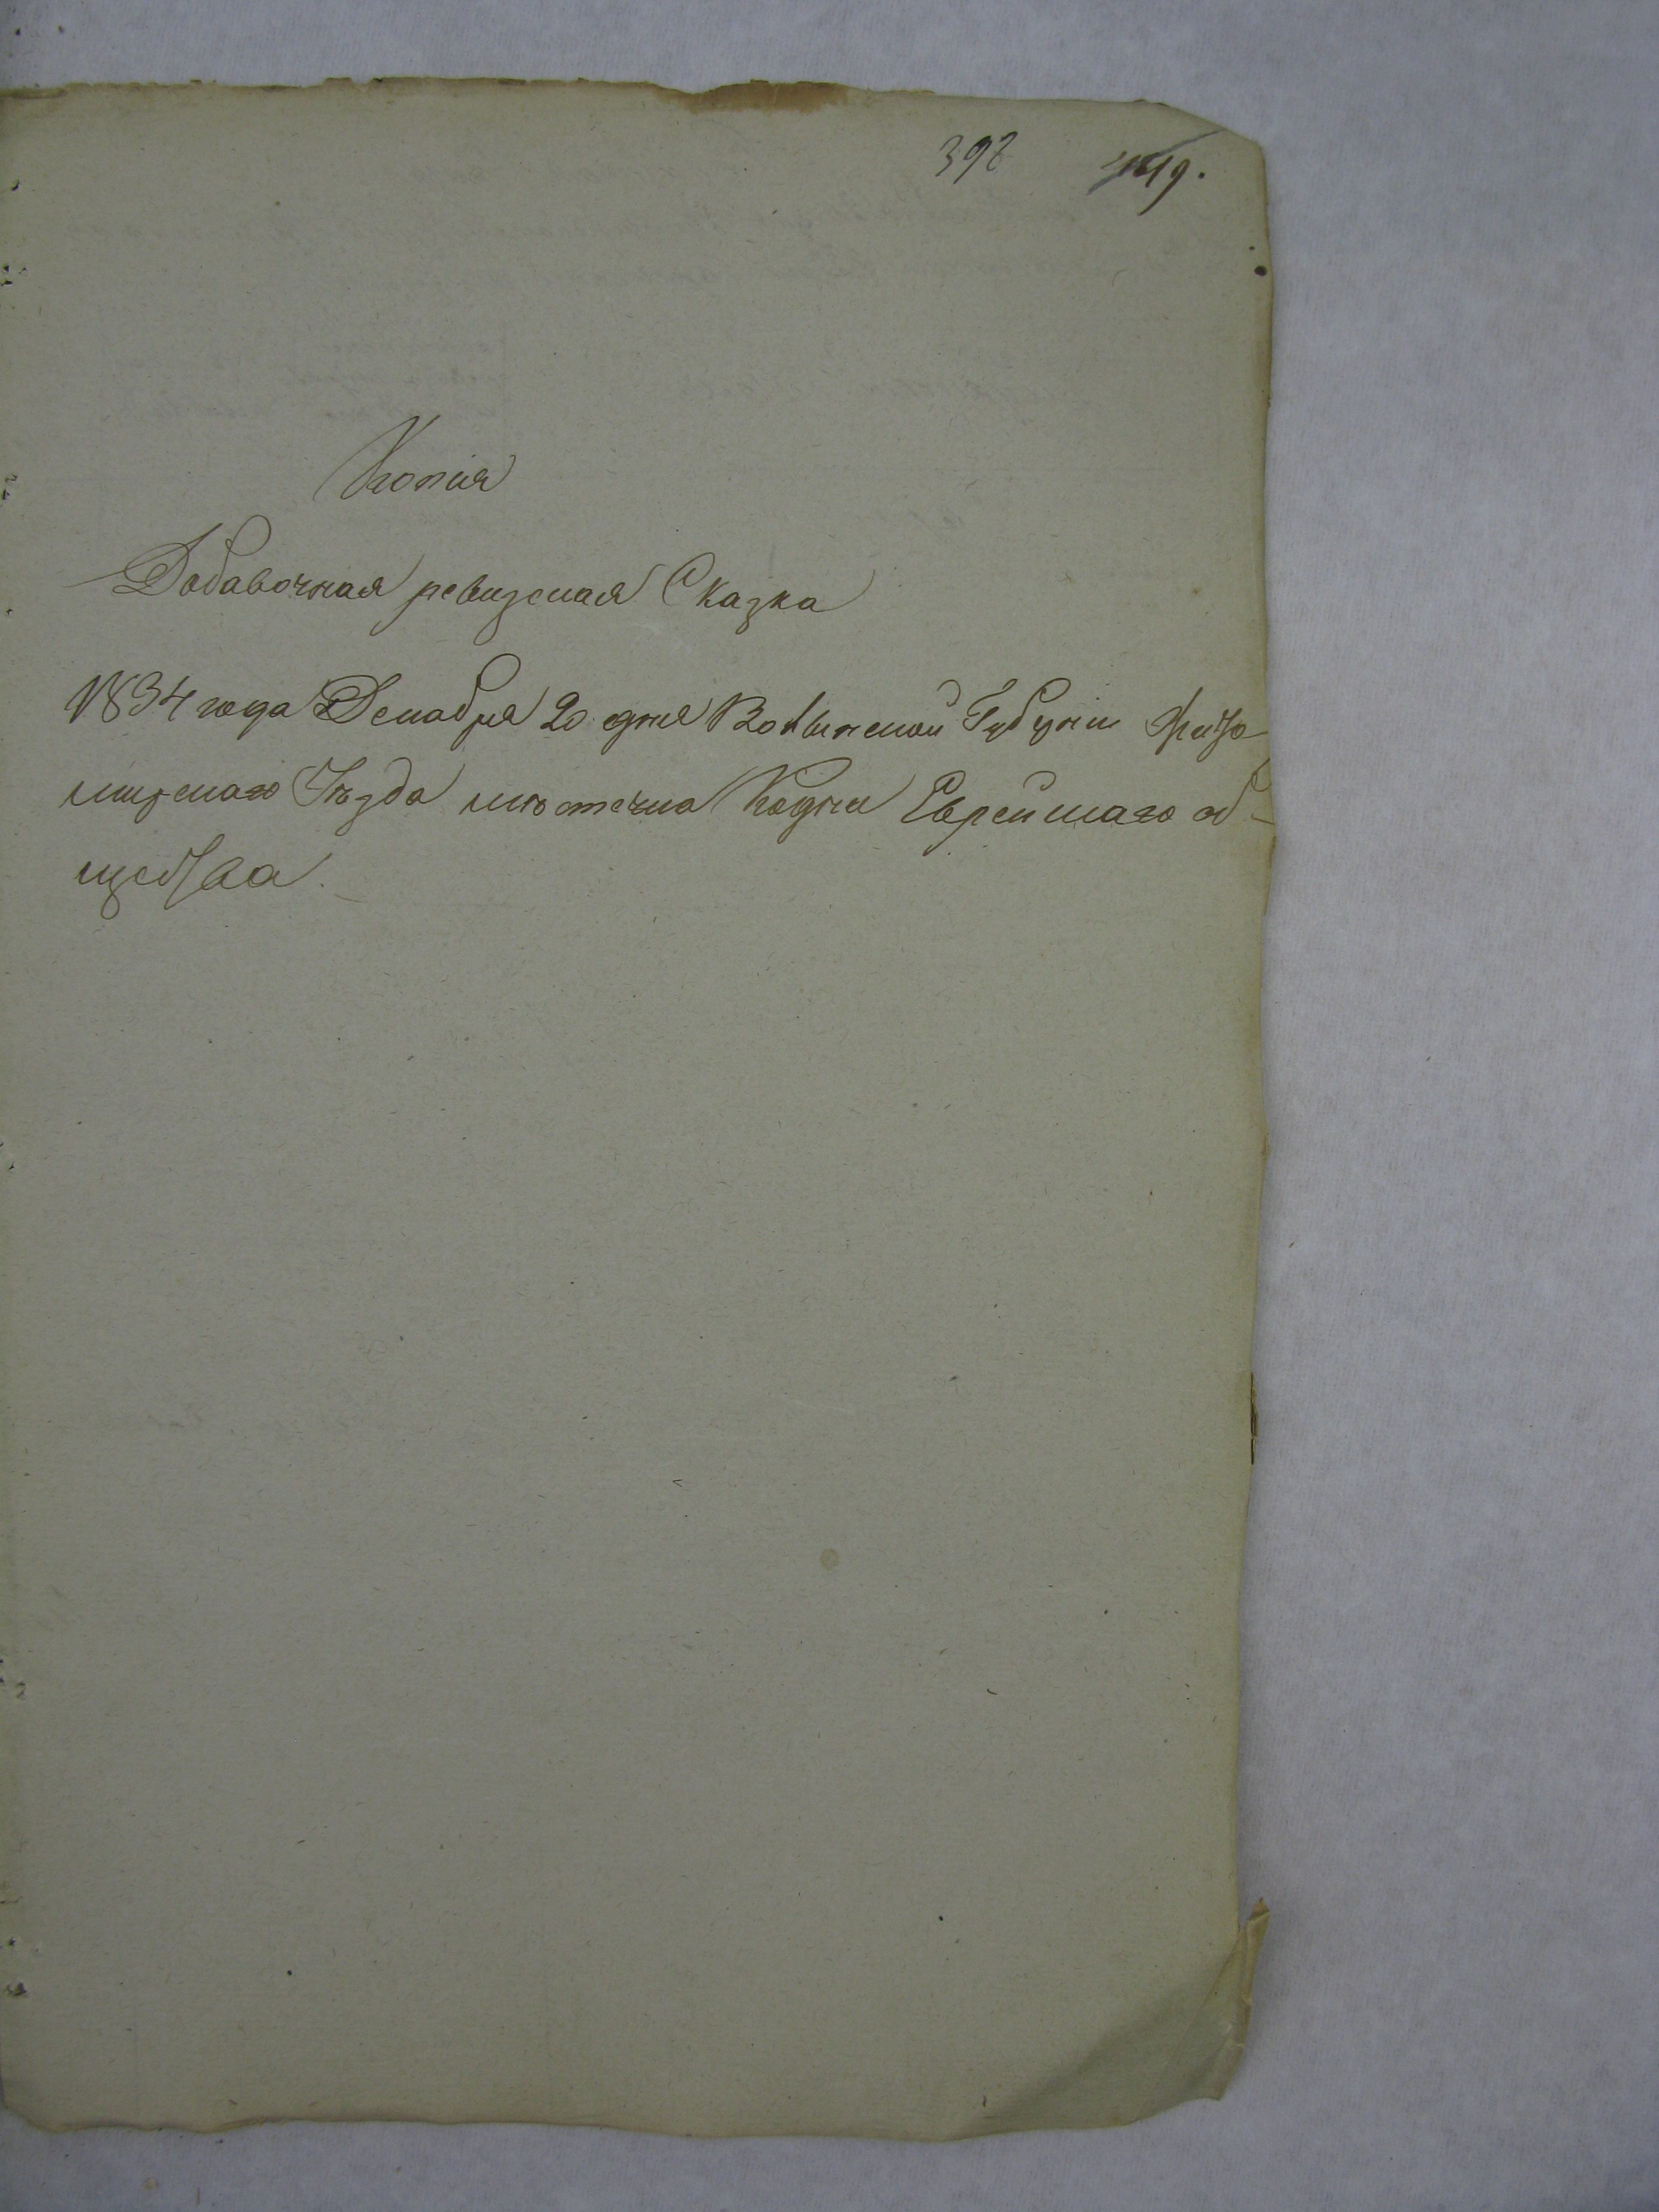 398 449.
Копія
Добавочная ревизская Сказка
1834 года Декабря 20 дня Волынской Губерніи Жито-
мирскаго Уѣзда мѣстечка Кодни Еврейскаго об-
щества.